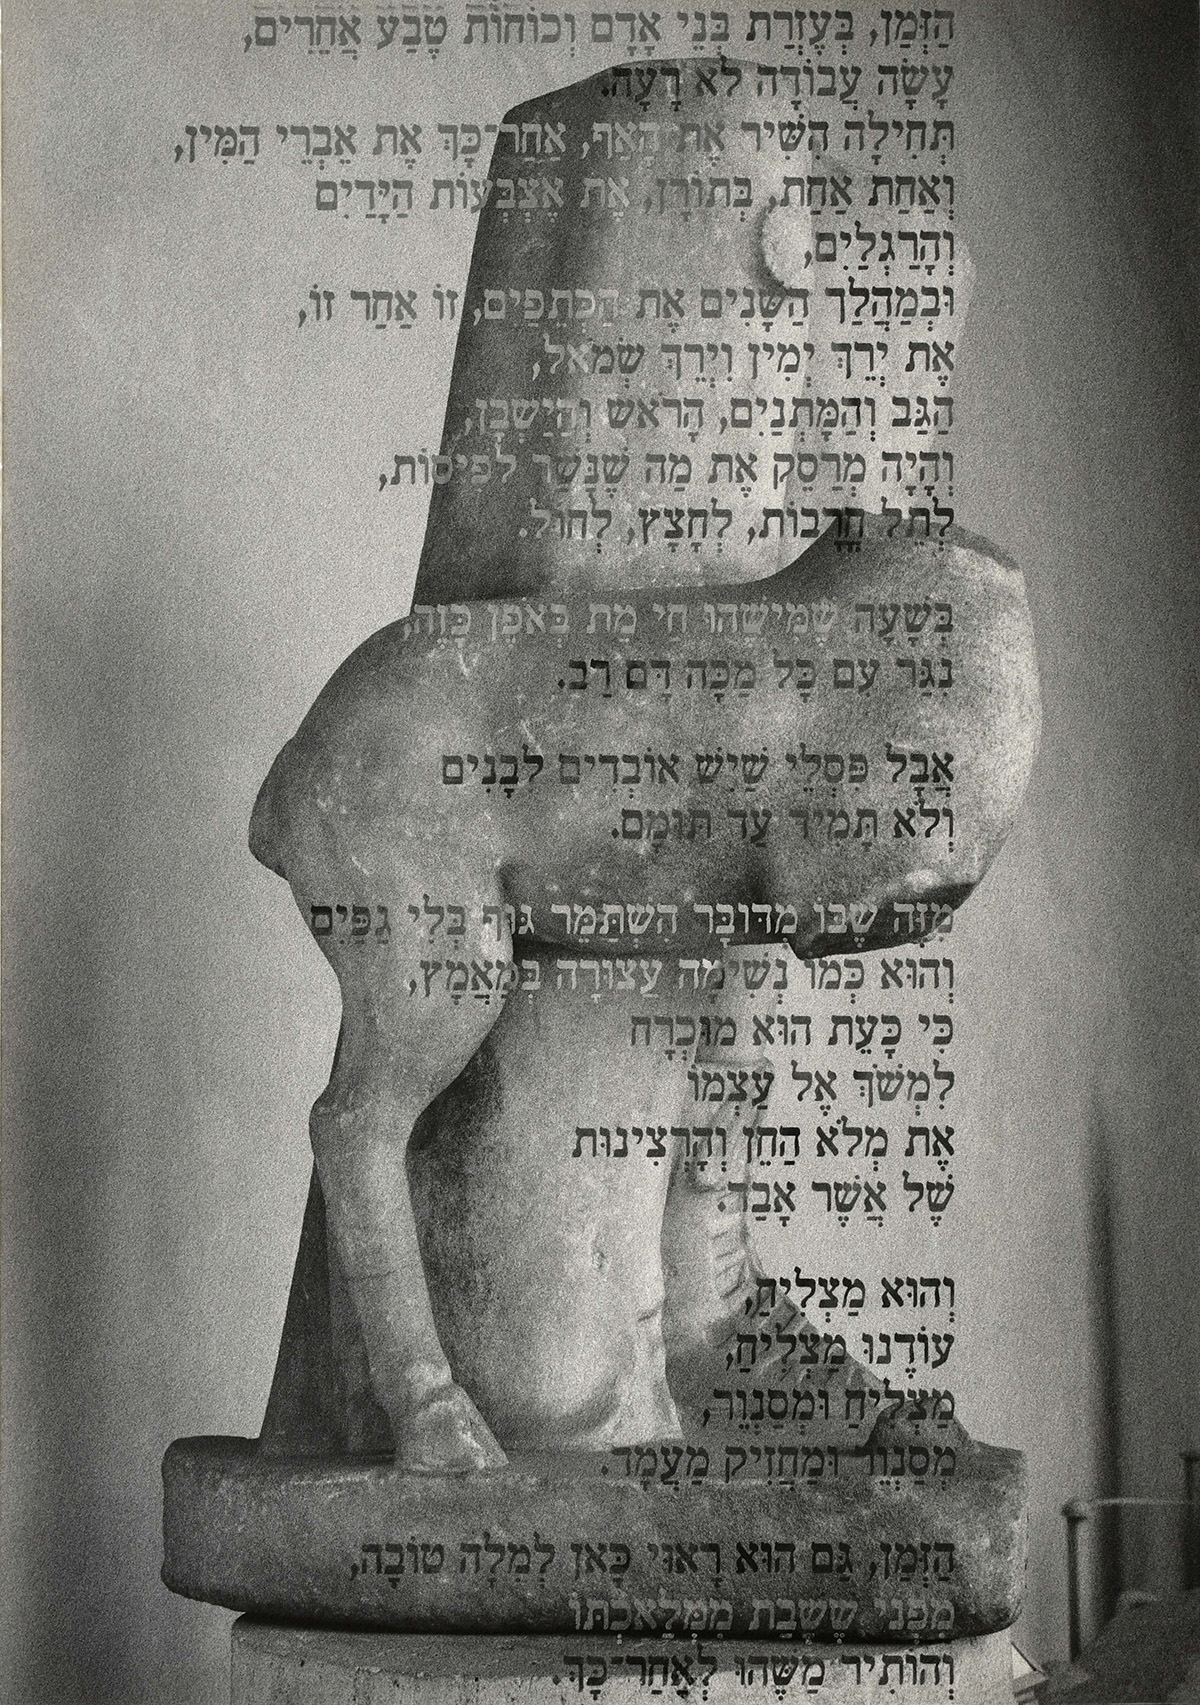 הַזְּמַן, בְּעֶזְרַת בְּנֵי אָדָם וְכוֹחוֹת טֶבַע אֲחֵרִים,
עָשָׂה עֲבוֹדָה לֹא רָעָה.
תְּחִילָּה הִשִּׁיר אֶת הָאַף, אַחַר־כָּךְ אֶת אֵבְרֵי הַמִּין,
וְאַחַת אַחַת, בְּתוֹרָן, אֶת אֶצְבְּעוֹת הַיָּדַיִם
וְהָרַגְלַיִם,
וּבְמַהֲלַךְ הַשָּׁנִים אֶת הַכְּתֵפַיִם, זוֹ אַחַר זוֹ,
אֶת יֶרֶךְ יְמִין וְיֶרֶךְ שְׂמֹאל,
הַגַּב וְהַמָּתְנַיִם, הָרֹאשׁ וְהַיַּשְׁבָן,
וְהָיָה מְרַסֵּק אֶת מַה שֶּׁנָּשַׁר לְפִיסּוֹת,
לְתֵל חֳרָבוֹת, לְחָצָץ, לְחוֹל.
בְּשָׁעָה שֶׁמִּישֶׁהוּ חַי מֵת בְּאֹפֶן כָּזֶה,
נִגָּר עִם כָּל מַכָּה דָּם רַב.
אֲבָל פִּסְלֵי שַׁיִשׁ אוֹבְדִים לְבָנִים
וְלֹא תָּמִיד עַד תּוּמָם.
מִזֶּה שֶׁבּוֹ מְדוּבָּר הִשְׁתַּמֵּר גּוּף בְּלִי גַפַּיִם
וְהוּא כְּמוֹ נְשִׁימָה עֲצוּרָה בְּמַאֲמָץ,
כִּי כָּעֵת הוּא מוּכְרָח
לִמְשֹׁךְ אֶל עַצְמוֹ
אֶת מְלֹא הַחֵן וְהָרְצִינוּת
שֶׁל אֲשֶׁר אָבַד.
וְהוּא מַצְלִיחַ,
עוֹדֶנּוּ מַצְלִיחַ,
מַצְלִיחַ וּמְסַנְוֵר,
מְסַנְוֵר וּמַחֲזִיק מַעֲמָד.
הַזְּמַן, גַּם הוּא רָאוּי כָּאן לְמִלָּה טוֹבָה,
מִפְּנֵי שֶׁשָּׁבַת מִמְּלַאכְתּוֹ
וְהוֹתִיר מַשֶּׁהוּ לְאַחַר־כָּךְ.